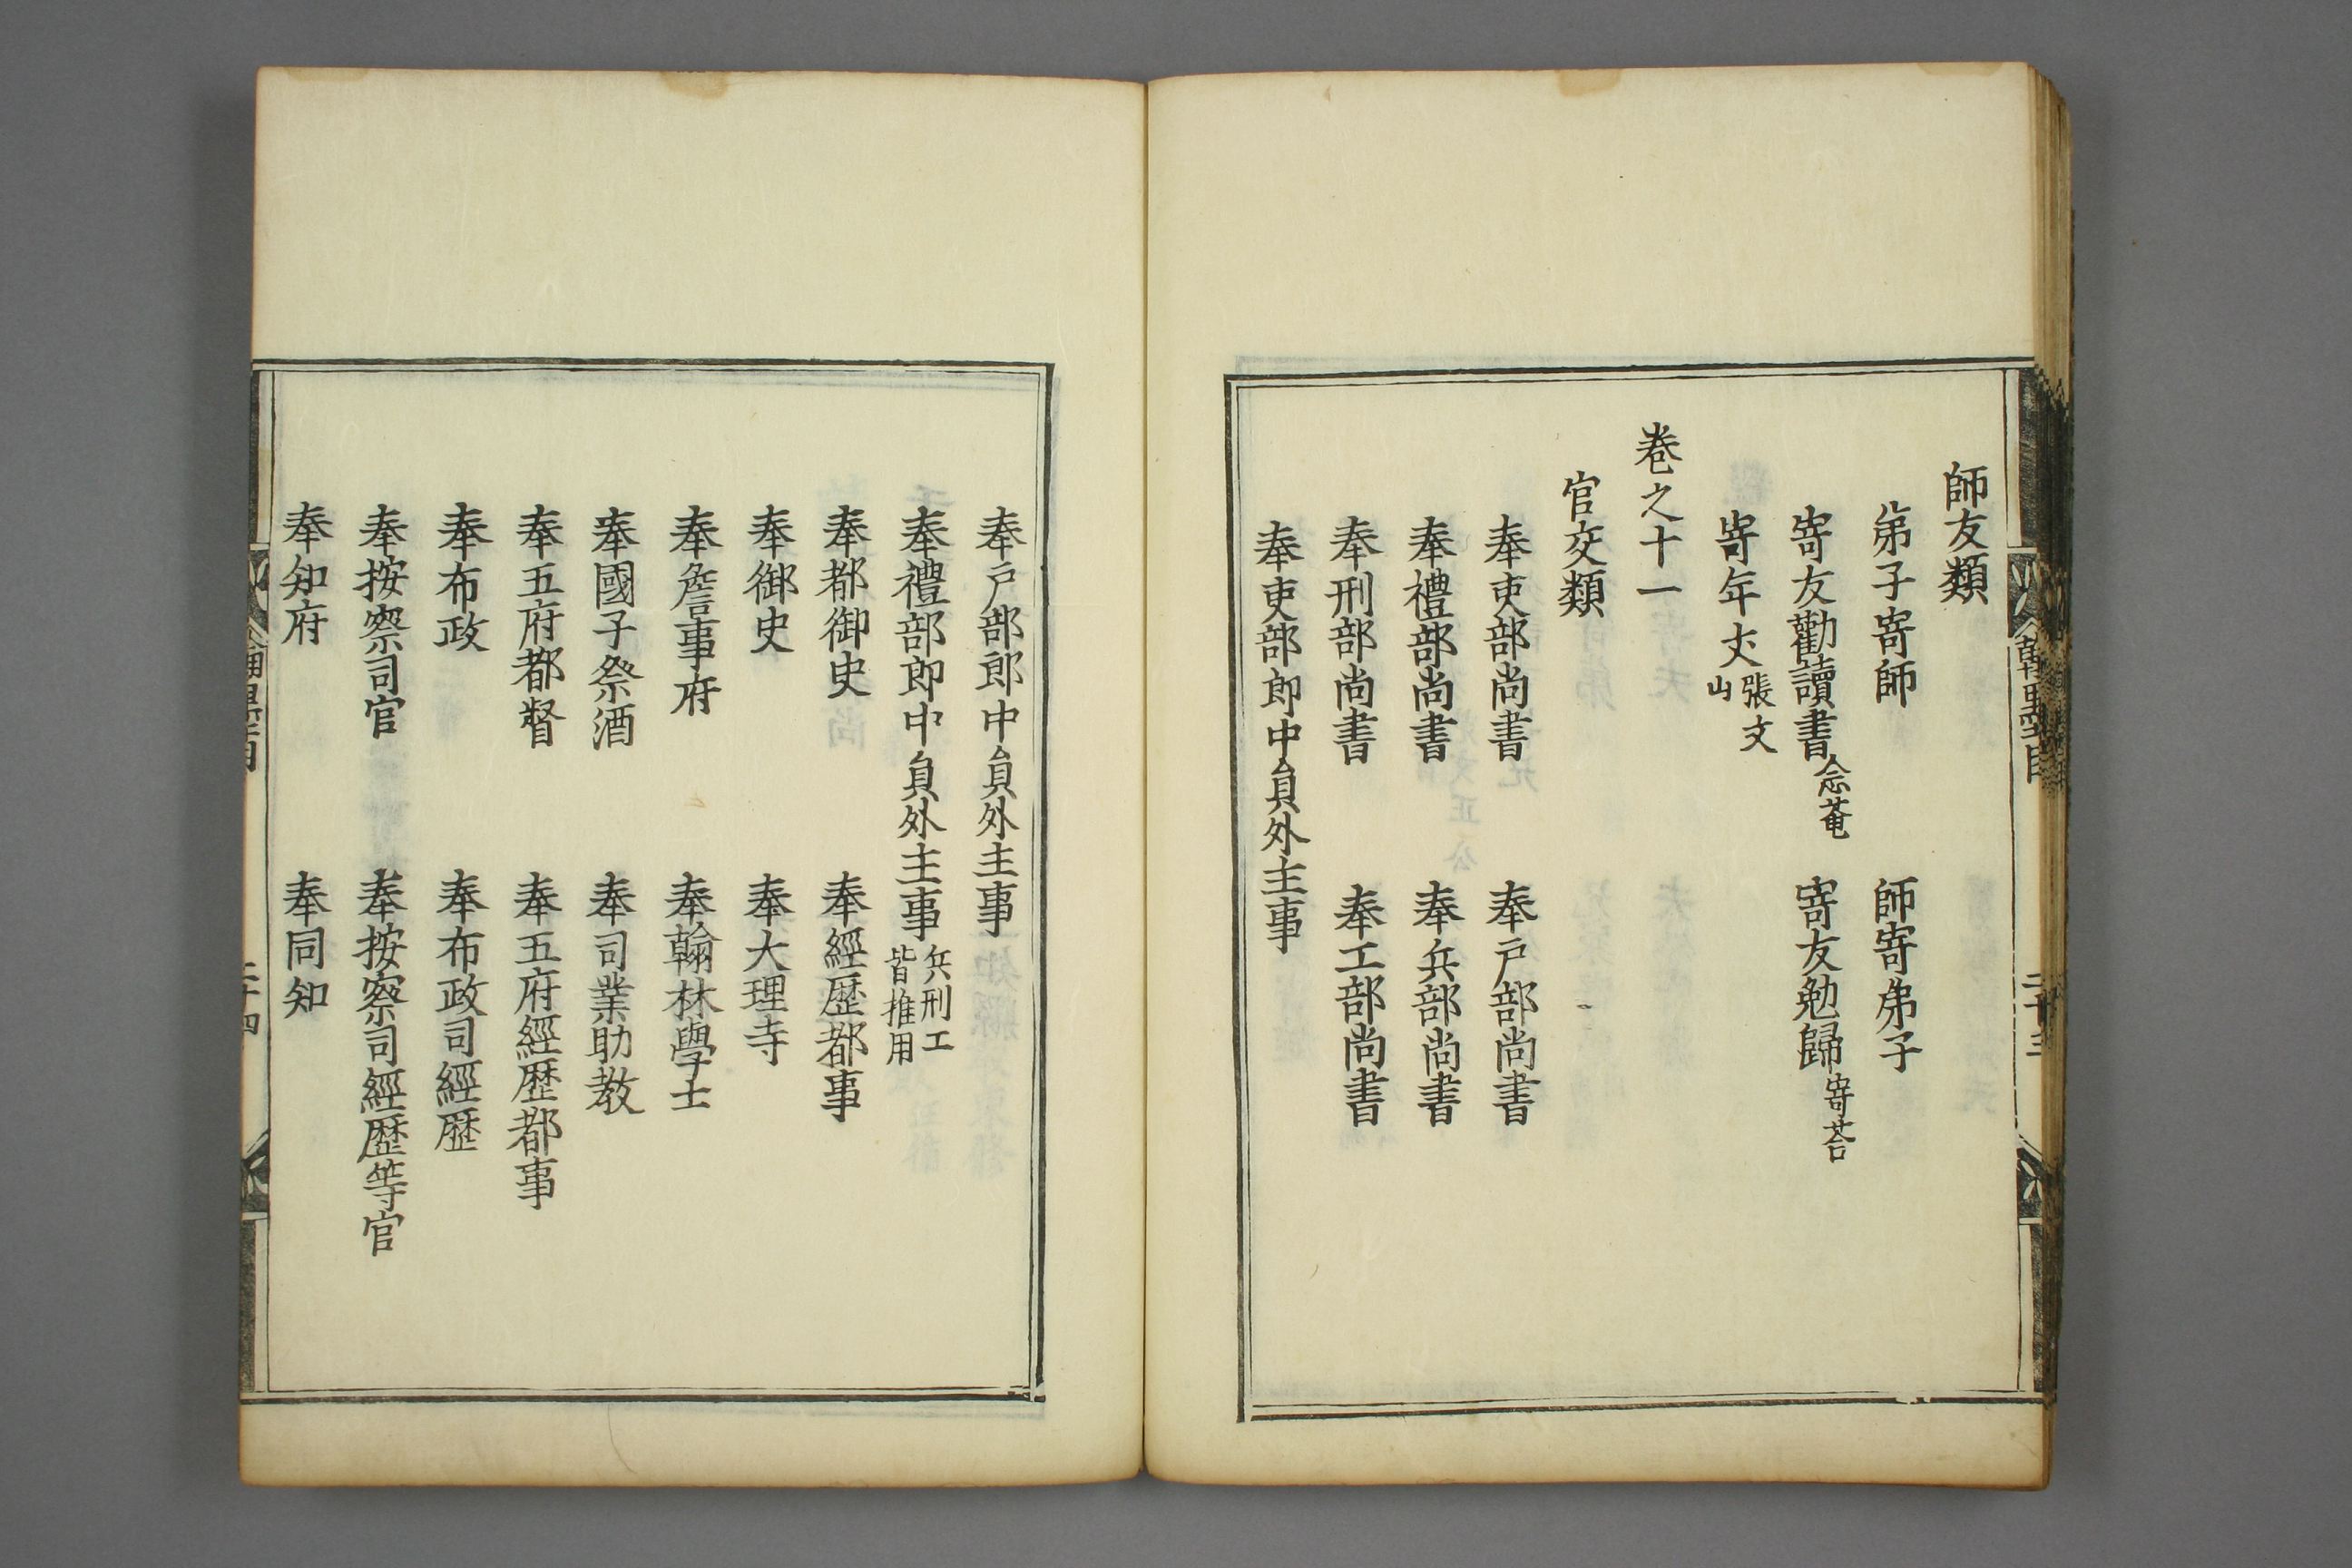 師友類
弟子寄師　師寄弟子
寄友勸讀書念菴　寄友勉歸寄荅
寄年丈張文山
卷之十一
官交類
奉吏部尚書　奉戶部尚書
奉禮部尚書　奉兵部尚書
奉刑部尚書　奉工部尚書
奉吏部郎中員外主事
奉戶部郎中員外主事
奉禮部郎中員外主事兵刑工皆推用
奉都御史　奉經歷都事
奉御史　奉大理寺
奉詹事府　奉翰林學士
奉國子祭酒　奉司業助教
奉五府都督　奉五府經歷都事
奉布政　奉布政司經歷
奉按察司官　奉按察司經歷等官
奉知府　奉同知